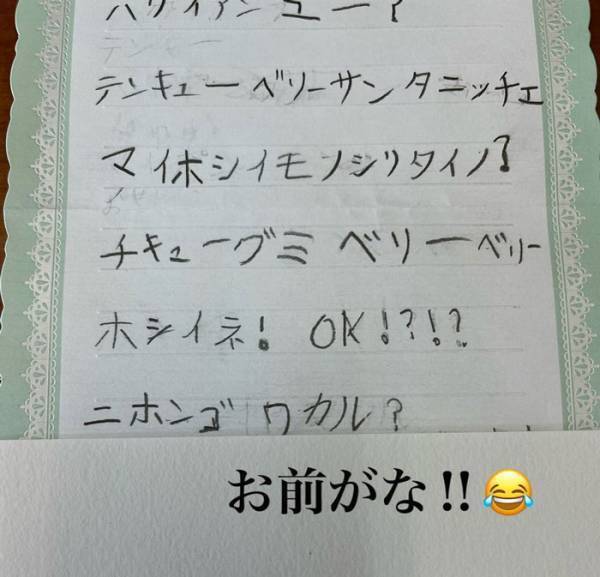 ハワイアンユー?
テンキューベリーサンタニッチェ
マイホシイモノシリタイノ?
チキューグミ ベリーベリー
ホシイネ! OK!?!?
ニホンゴ ワカル?
お前がな!!😂